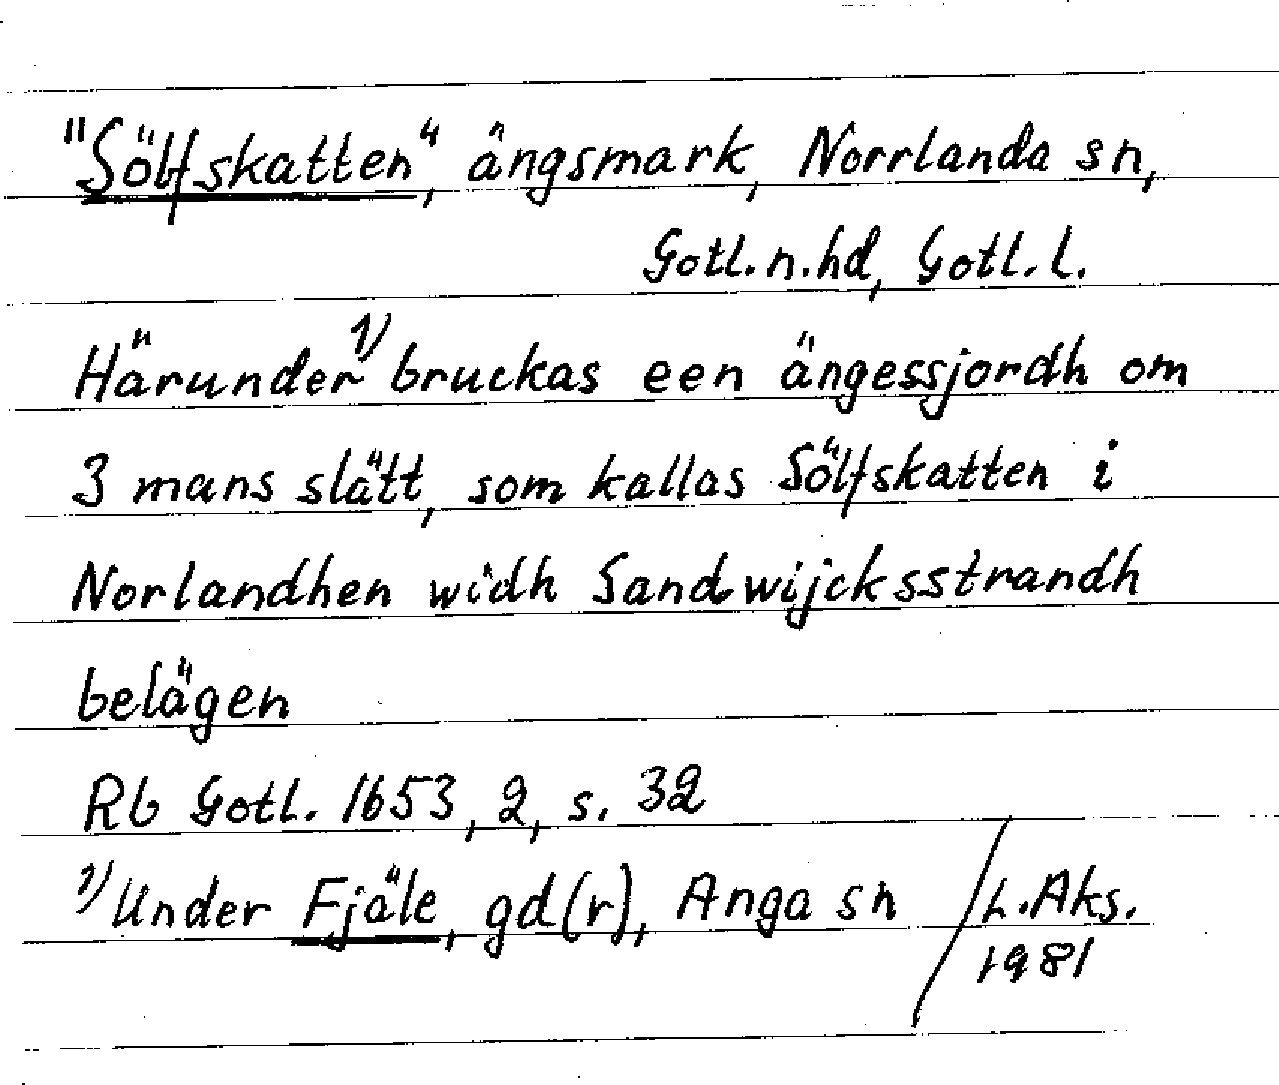 "Sölfskatten", ängsmark, Norrlanda sn,
Gotl. n. hd, Gotl. l.
Härunder 1) bruckas een ängessjordh om
3 mans slätt, som kallas Sölfskatten i
Norlandhen widh Sandwijcksstrandh
belägen
Rb Gotl. 1653, 2, s. 32
1) Under Fjäle, gd(r), Anga sn / L. Aks.
1981